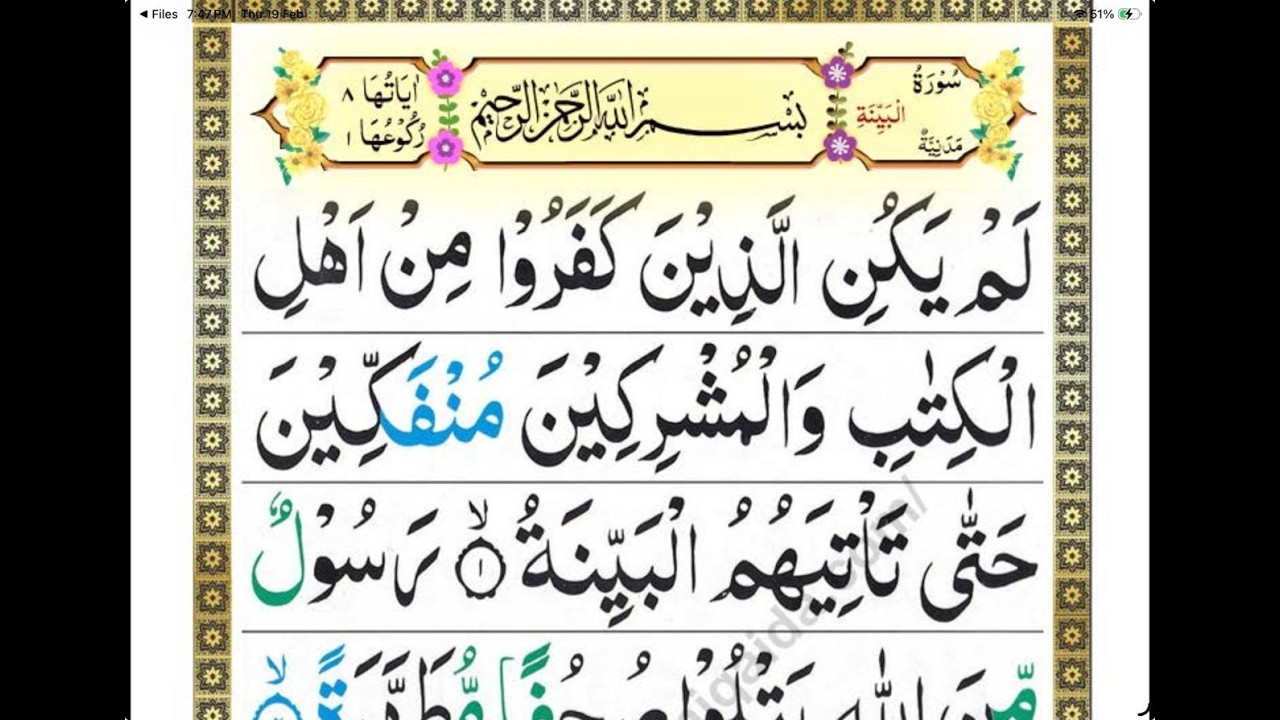 ◀ Files 7:47 PM Thu 19 Feb 51%
سُوْرَةُ الْبَيِّنَةِ مَدَنِيَّةٌ
بِسْمِ اللّٰهِ الرَّحْمٰنِ الرَّحِيْمِ
اٰيَاتُهَا ٨
رُكُوْعُهَا ١
لَمْ يَكُنِ الَّذِيْنَ كَفَرُوْا مِنْ اَهْلِ
الْكِتٰبِ وَالْمُشْرِكِيْنَ مُنْفَكِّيْنَ
حَتّٰى تَاْتِيَهُمُ الْبَيِّنَةُ ۙ‏﴿١﴾ رَسُوْلٌ
مِّنَ اللّٰهِ يَتْلُوْا صُحُفًا مُّطَهَّرَةً ۙ